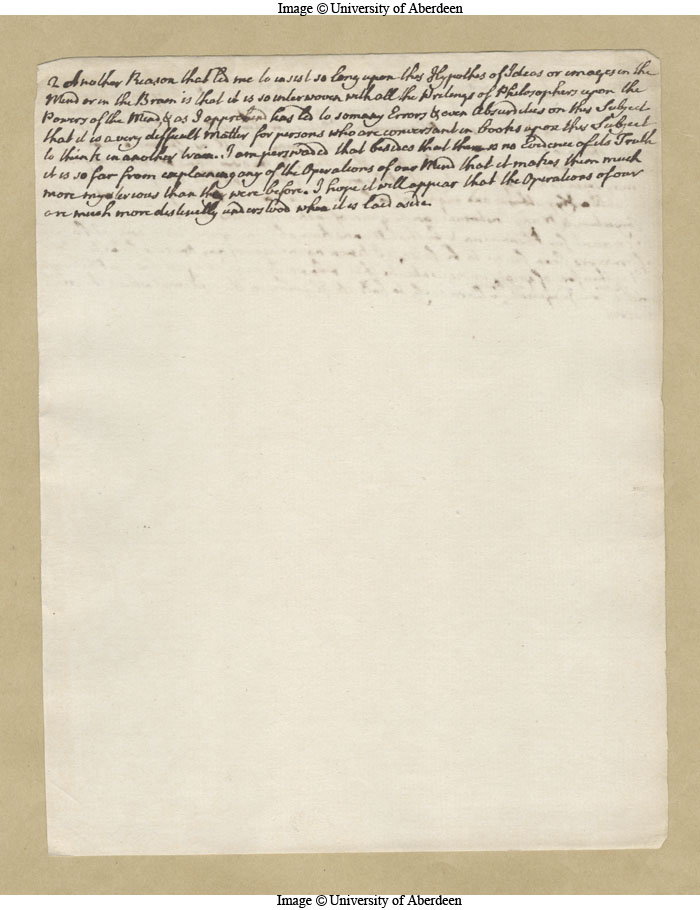 Image © University of Aberdeen
2 Another Reason that led me to insist so long upon this Hypothes of Ideas or images in the
Mind or in the Brain is that it is so interwoven with all the Writings of Philosophers upon the
Powers of the Mind, & as I apprehend has led to so many Errors & even Absurdities on this Subject
that it is a very difficult Matter for persons who are conversant in books upon this Subject
to think in another train. I am perswaded that besides that there is no Evidence of its Truth
it is so far from explaining any of the Operations of our Mind that it makes them much
more mysterious than they were before. I hope it will appear that the Operations of our
are much more distinctly understood when it is laid aside.
Image © University of Aberdeen